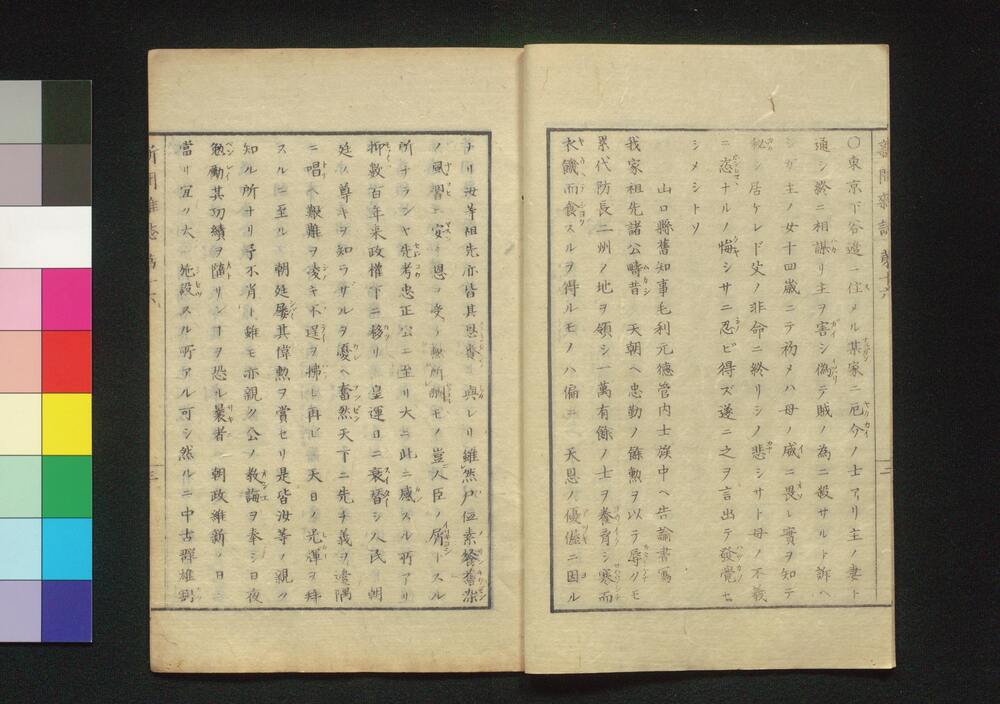 新聞雜誌 第十六
〇東京下谷邊ニ住メル某家ニ厄介ノ士アリ主ノ妻ト
通シ終ニ相謀リ主ヲ害シ偽テ賊ノ為ニ殺サルト訴ヘ
シガ主ノ女十四歳ニテ初メハ母ノ威ニ畏レ實ヲ知テ
秘シ居ケレド父ノ非命ニ終リシノ悲シサト母ノ不義
ニ恣ナルノ悔シサニ忍ビ得ズ遂ニ之ヲ言出テ發覺セ
シメシトソ
山口縣舊知事毛利元德管内士族中ヘ告諭書寫
我家祖先諸公疇昔 天朝ヘ忠勤ノ餘勲ヲ以テ辱クモ
累代防長二州ノ地ヲ領シ一萬有餘ノ士ヲ養育シ寒而
衣饑而食スルヲ得ルモノハ偏ニ 天恩ノ優渥ニ因ル
ナリ汝等祖先亦皆其恩眷ニ與レリ雖然尸位素餐舊染
ノ風習ニ安シ恩ヲ受ケ無所酬モノ豈人臣ノ屑トスル
所ナランヤ先考忠正公ニ至リ大ニ此ニ感スル所アリ
抑數百年来政權下ニ移リ 皇運日ニ衰替シ人民 朝
廷ノ尊キヲ知ラザルヲ憂ヘ奮然天下ニ先チ義ヲ邊隅
ニ唱ヘ艱難ヲ凌キ不逞ヲ拂ヒ再ビ 天日ノ光輝ヲ拜
スルニ至ル 朝廷屡其偉勲ヲ賞セリ是皆汝等ノ親ク
知ル所ナリ予不肖ト雖モ亦親ク公ノ教諭ヲ奉シ日夜
勉勵其功績ヲ墮サンコヲ恐ル曩者 朝政維新ノ日ニ
當リ宜ク大ニ施設スル所アル可シ然ルニ中古群雄割
新聞雜誌 第十六
三